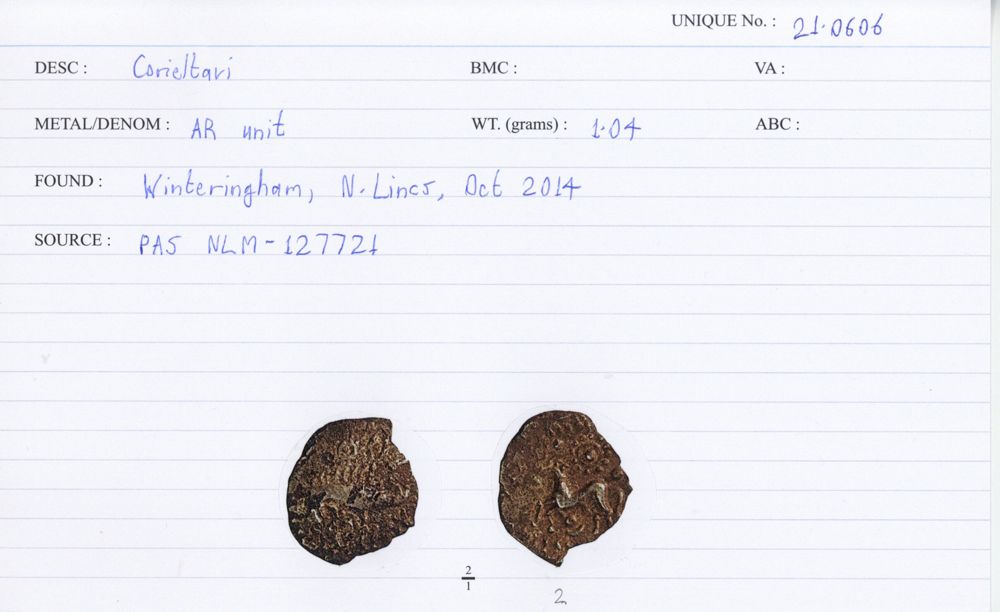 UNIQUE No. : 21.0606
DESC : Corieltavi BMC : VA :
METAL/DENOM : AR unit WT. (grams) : 1.04 ABC :
FOUND : Winteringham, N. Lincs, Oct 2014
SOURCE : PAS NLM-127721
2
1
2